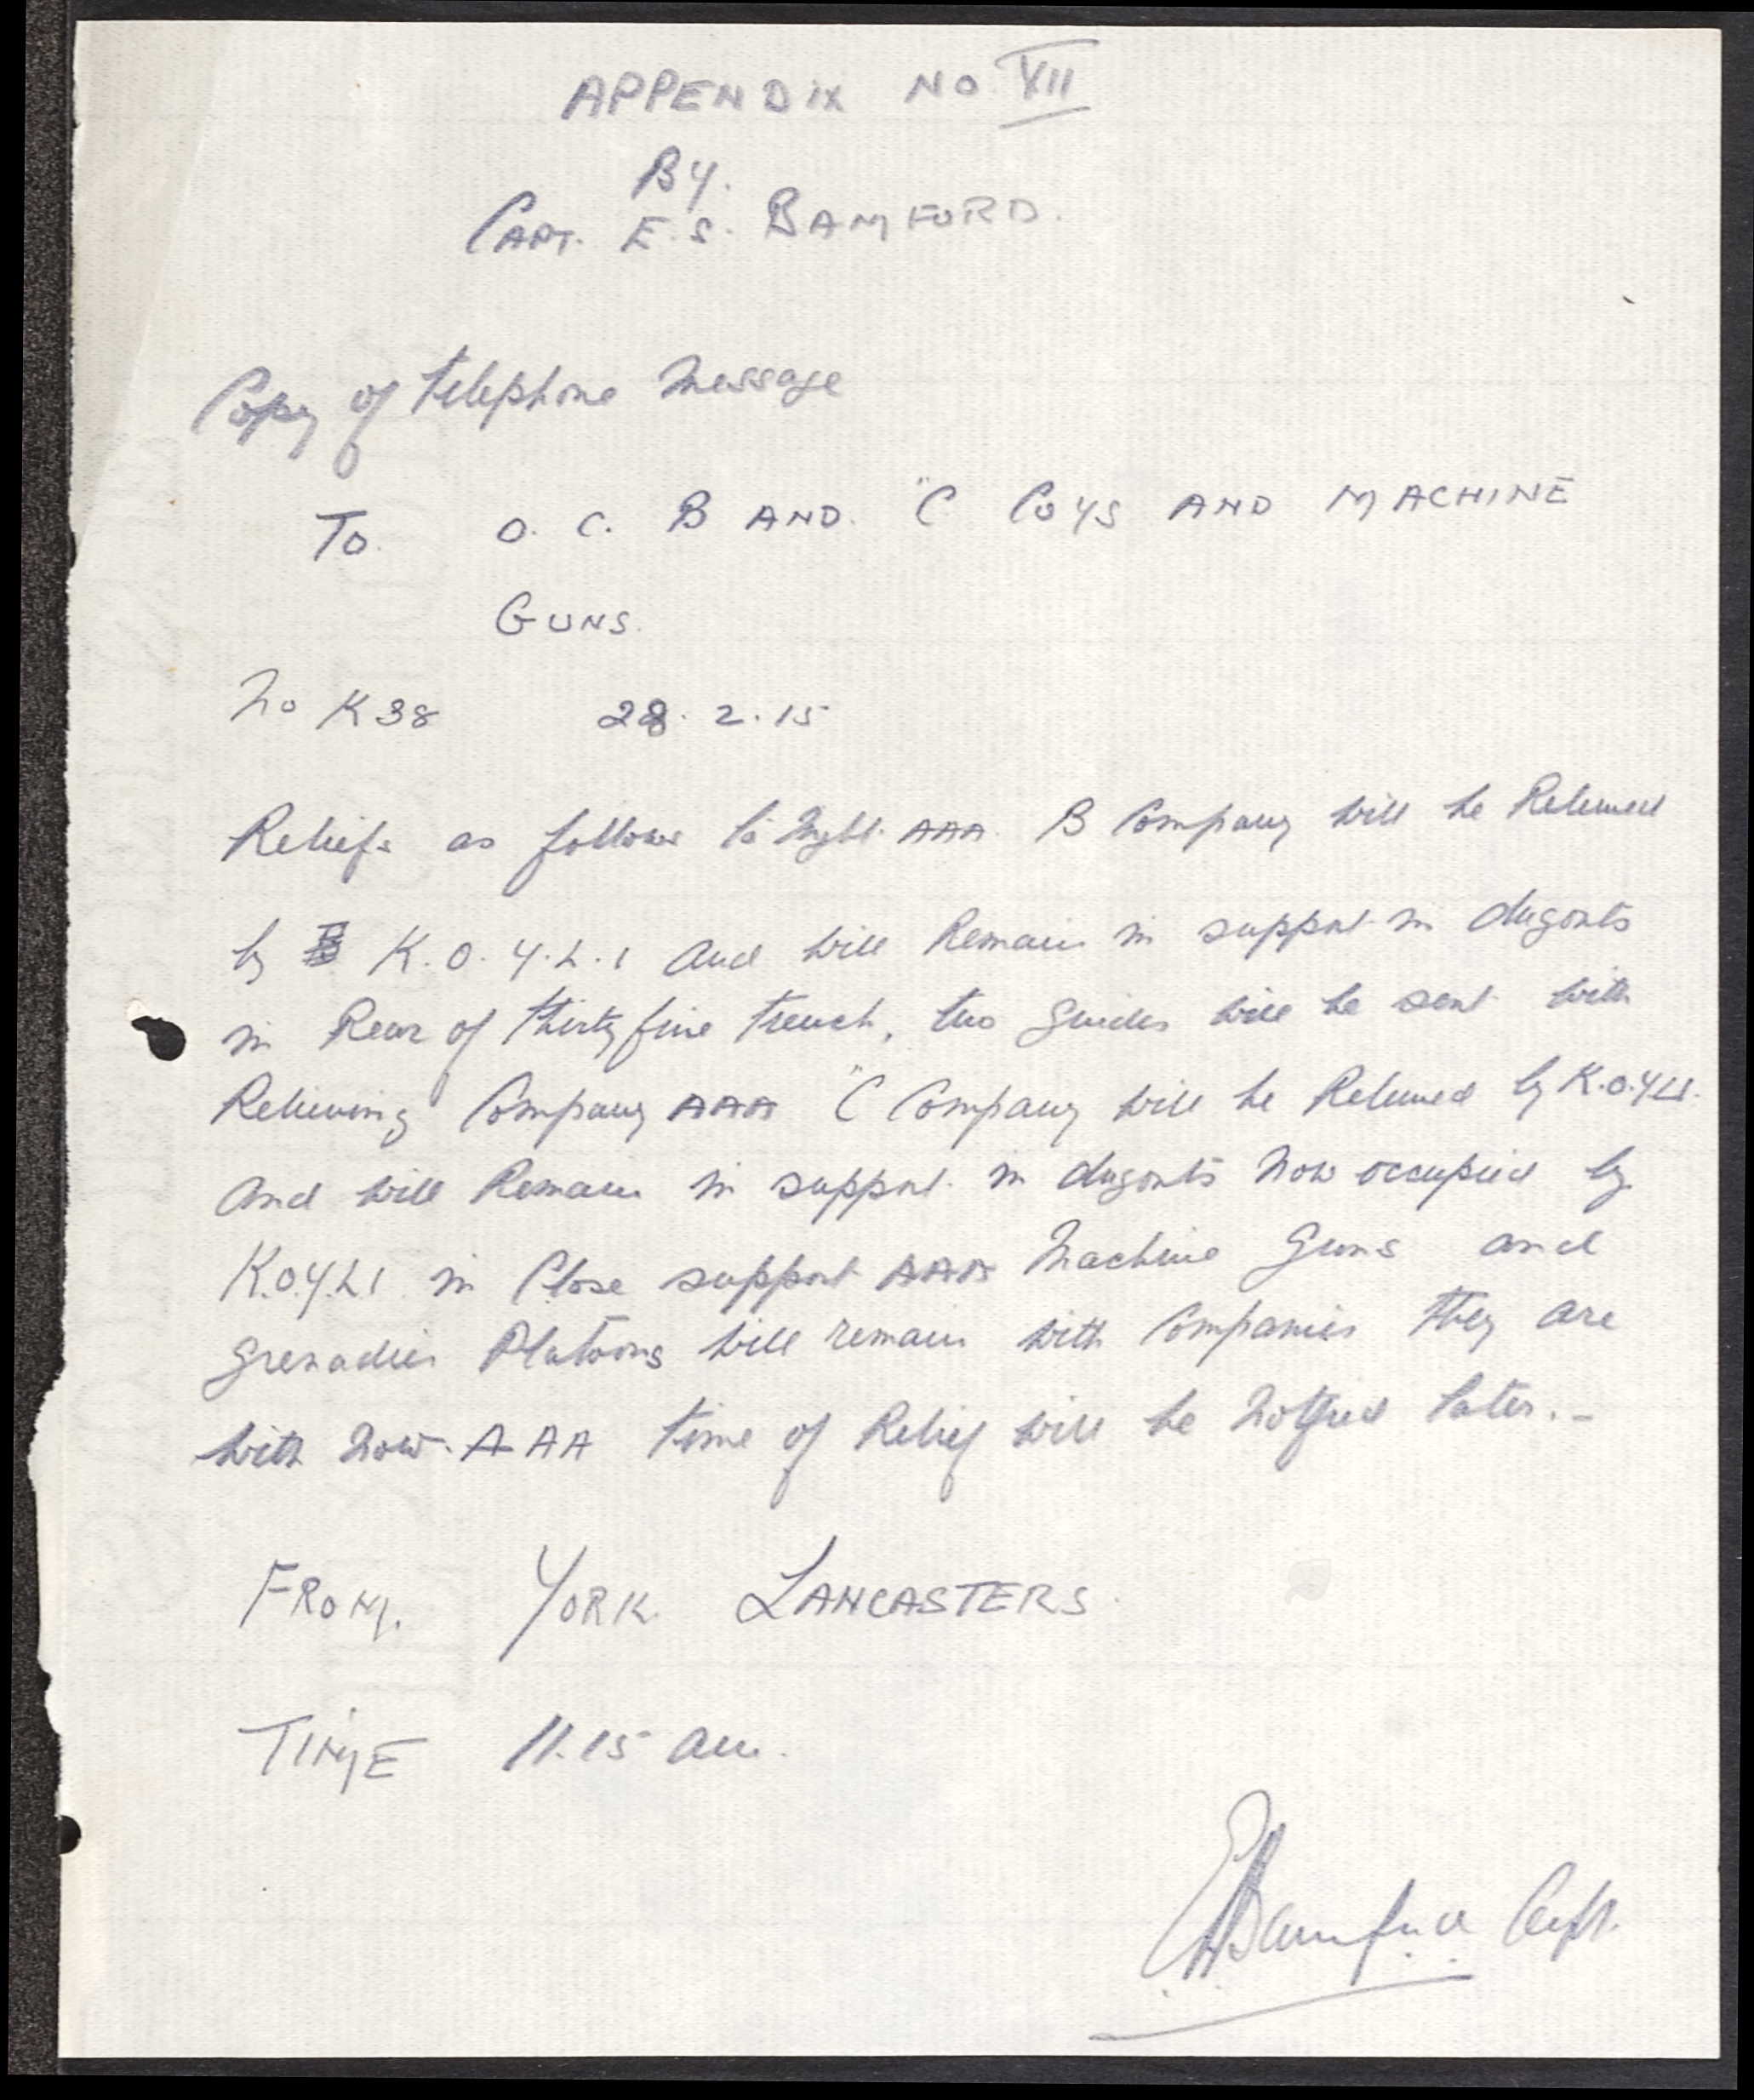 APPENDIX NO VII
BY.
CAPT. E.S. BAMFORD.
Copy of telephone message
TO. O. C. B AND. "C COYS AND MACHINE
GUNS.
No K38 28. 2. 15
Reliefs as follows to night. AAA. B Company will be Relieved
by K. O. Y. L. I and will Remain in support in dugouts
in Rear of thirty five trench, two guides will be sent with
Relieving Company AAA "C Company will be Relieved by K.O.Y.L.I.
and will Remain in support in dugouts now occupied by
K.O.Y.L.I. in Close support AAA Machine Guns and
Grenadier Platoons will remain with Companies they are
with now. AAA time of Relief will be notified later. -
FROM. YORK. LANCASTERS.
TIME 11.15 am.
ESBamford Capt.